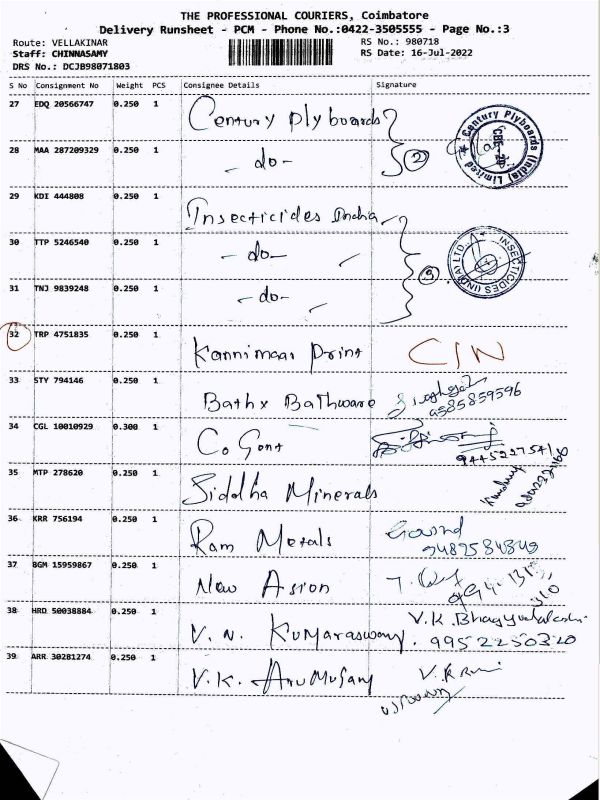 THE PROFESSIONAL COURIERS, Coimbatore
Delivery Runsheet - PCM - Phone No.:0422-3505555 - Page No.:3
Route: VELLAKINAR RS No.: 980718
Staff: CHINNASAMY RS Date: 16-Jul-2022
DRS No.: DCJB98071803
S No Consignment No Weight PCS Consignee Details Signature
27 EDQ 20566747 0.250 1 Century Plyboards
Century Plyboards (India) Limited
28 MAA 287209329 0.250 1 - do - 2
29 KDI 444808 0.250 1 Insecticides India
30 TTP 5246540 0.250 1 - do -
INSECTICIDES (INDIA) LTD.
31 TNJ 9839248 0.250 1 - do - 3
32 TRP 4751835 0.250 1 Kannimaar Print CIN
33 STY 794146 0.250 1 Bathx Bathware
9585859596
34 CGL 10010929 0.300 1
35 MTP 278620 0.250 1 Siddha Minerals
36 KRR 756194 0.250 1 Ram Metals Govind
37 BGM 15959867 0.250 1 New Asion
38 HRD 50038884 0.250 1 V. N. Kumaraswamy. 9952250320
39 ARR 30281274 0.250 1 V. K. Arumugam